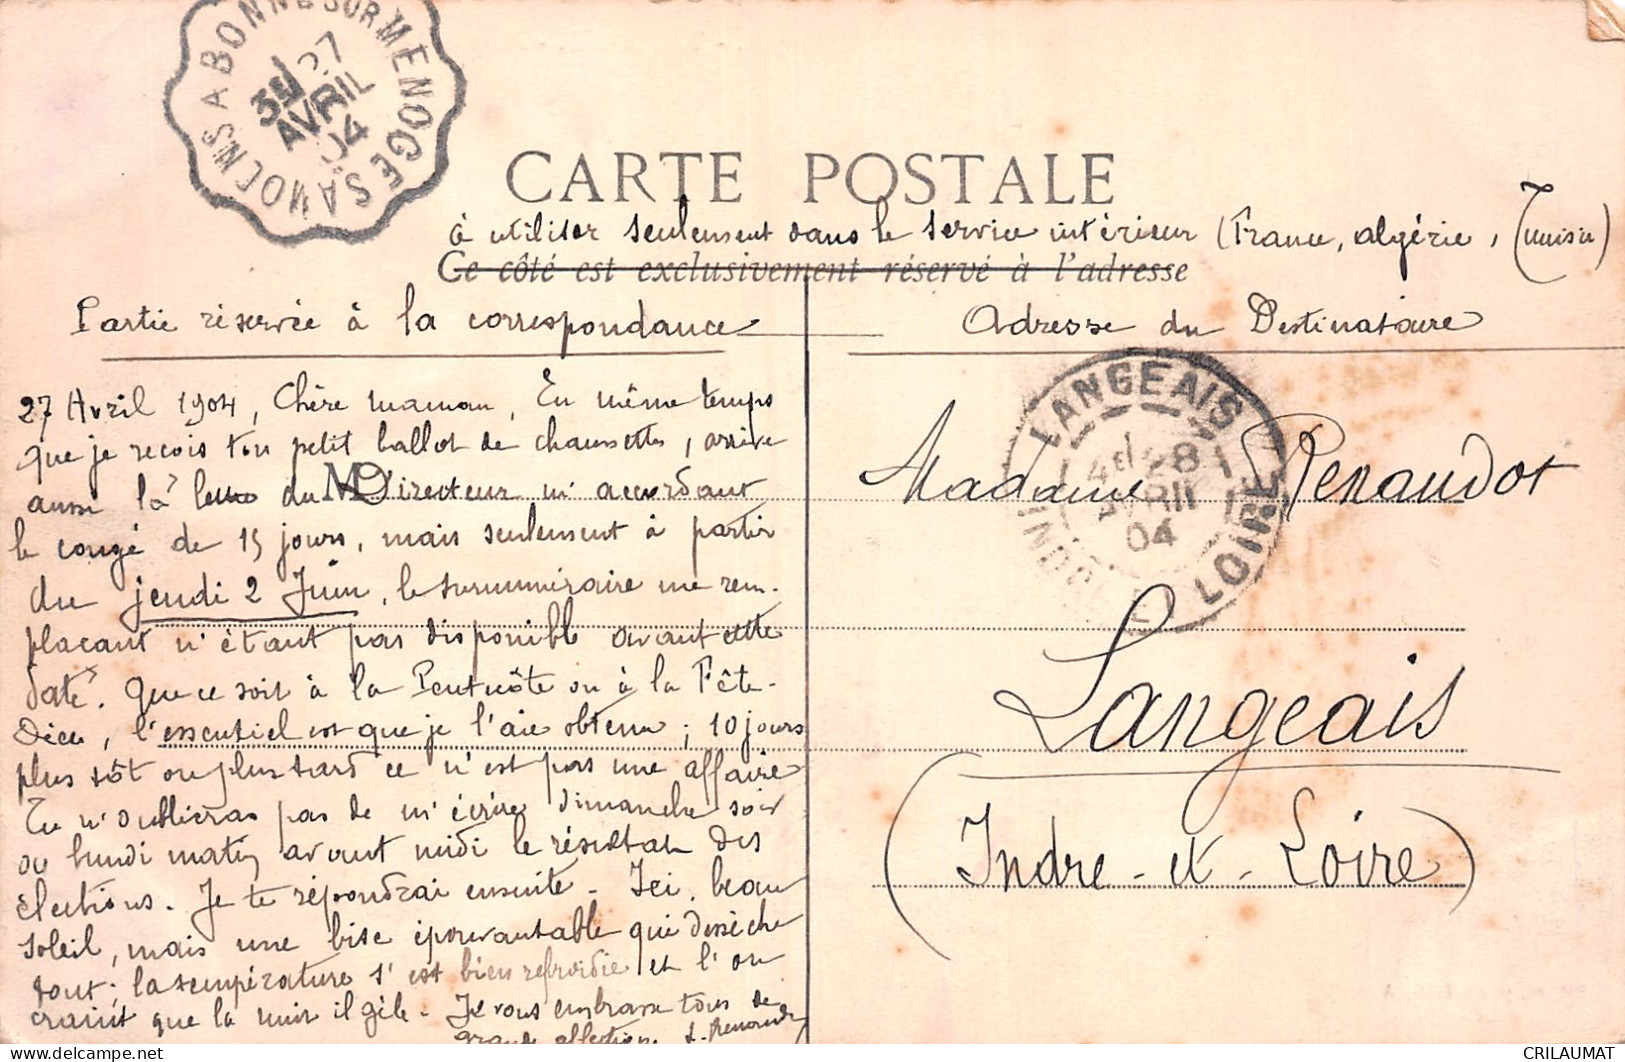 SAMOENS A BONNE SUR MENOGE
3E/ 27
AVRIL
04
CARTE POSTALE
à utiliser seulement dans le service intérieur (France, Algérie, Tunisie)
Ce côté est exclusivement réservé à l'adresse
Partie réservée à la correspondance
Adresse du Destinataire
27 Avril 1904, Chère maman, En même temps
que je reçois ton petit ballot de chaussettes, arrive
aussi la lettre du Directeur m'accordant
le congé de 15 jours, mais seulement à partir
du jeudi 2 Juin, le surnuméraire me rem-
plaçant n'étant pas disponible avant cette
date. Que ce soit à la Pentecôte ou à la Fête-
Dieu, l'essentiel est que je l'aie obtenu ; 10 jours
plus tôt ou plus tard ce n'est pas une affaire
Tu n'oublieras pas de m'écrire dimanche soir
ou lundi matin avant midi le résultat des
élections. Je te répondrai ensuite - Ici, beau
soleil, mais une bise épouvantable qui dessèche
tout ; la température s'est bien refroidie et l'on
craint que la nuit il gèle - Je vous embrasse tous de
grande affection. L. Renaudot
LANGEAIS
4E/ 28
AVRIL
04
INDRE ET LOIRE
Madame Renaudot
Langeais
(Indre - et - Loire)
CRILAUMAT